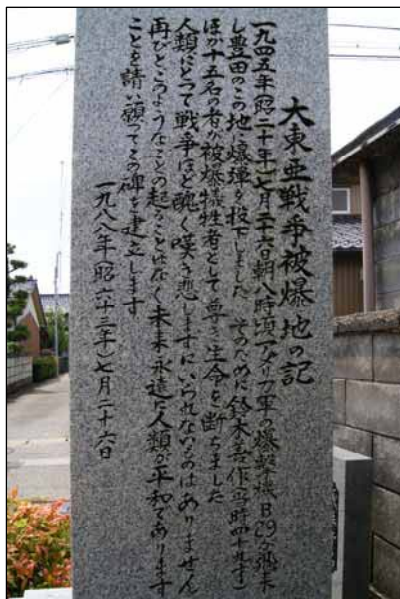 大東亜戦争被爆地の記
一九四五年(昭二十年)七月二十六朝八時頃アメリカ軍の爆撃機B29が飛来
し豊田のこの地へ爆弾を投下しました そのために鈴木喜作(当時四十九才)
ほか十五名の者が被爆犠牲者として尊き生命を断ちました
人類にとって戦争ほど醜く嘆き悲しまずにいられないものはありません
再びとこのようなことの起ることはなく未来永遠に人類が平和であります
ことを請い願ってこの碑を建立します
一九八八年(昭六十三年)七月二十六日